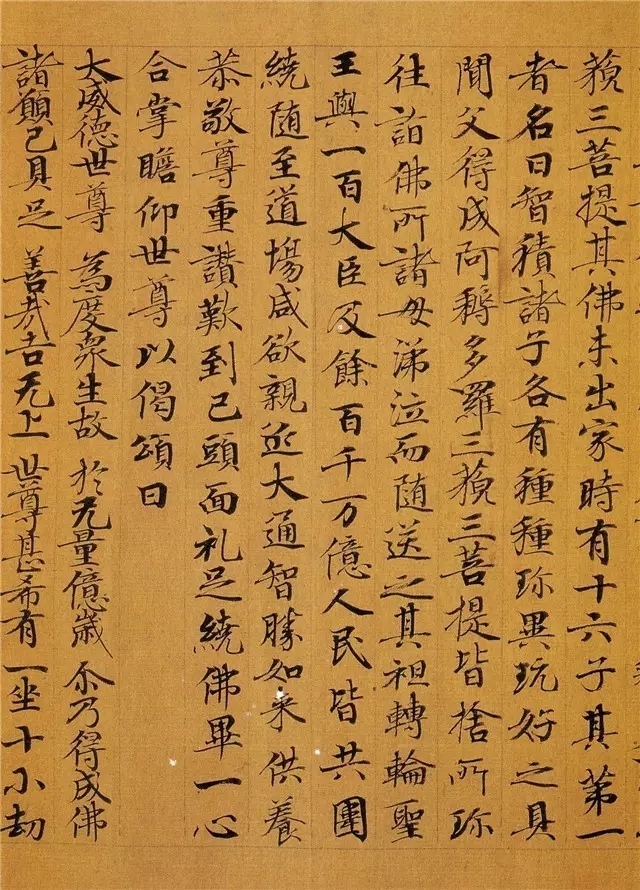 藐三菩提其佛未出家時有十六子其苐一
者名曰智積諸子各有種種珎異玩好之具
聞父得成阿耨多羅三藐三菩提皆捨所珎
往詣佛所諸母涕泣而隨送之其祖轉輪聖
王與一百大臣及餘百千万億人民皆共圍
繞隨至道場咸欲親近大通智勝如来供養
恭敬尊重讃歎到已頭面礼足繞佛畢一心
合掌瞻仰世尊以偈頌曰
大威德世尊 為度衆生故 於无量億歲 尒乃得成佛
諸願已具足 善哉吉无上 世尊甚希有 一坐十小劫